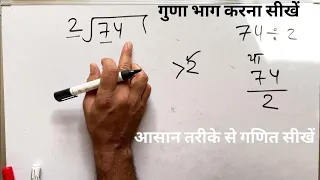 गुणा भाग करना सीखें
2√74(
74÷2
>2
या
74
2
आसान तरीके से गणित सीखें